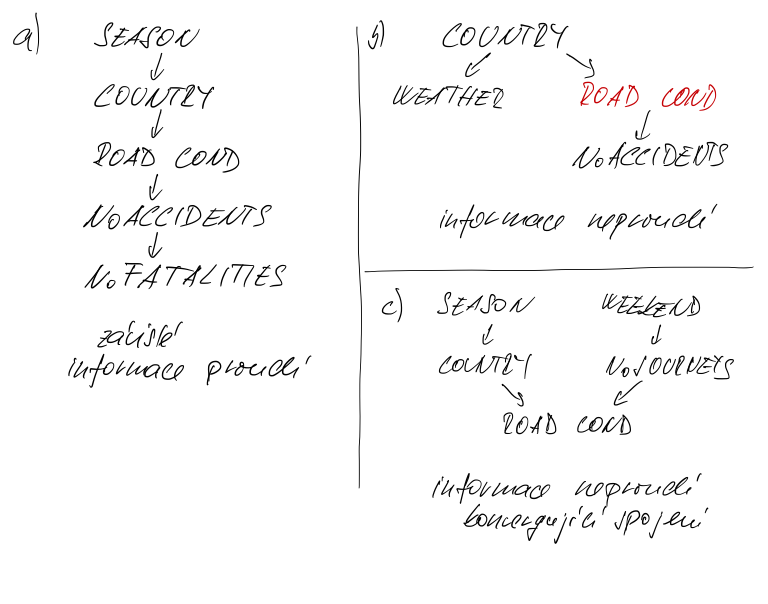 a)
SEASON
COUNTRY
ROAD COND
NoACCIDENTS
NoFATALITIES
závislé
informace proudí
b)
COUNTRY
WEATHER ROAD COND
NoACCIDENTS
informace neproudí
c)
SEASON WEEKEND
COUNTRY NoJOURNEYS
ROAD COND
informace neproudí
konvergující spojení